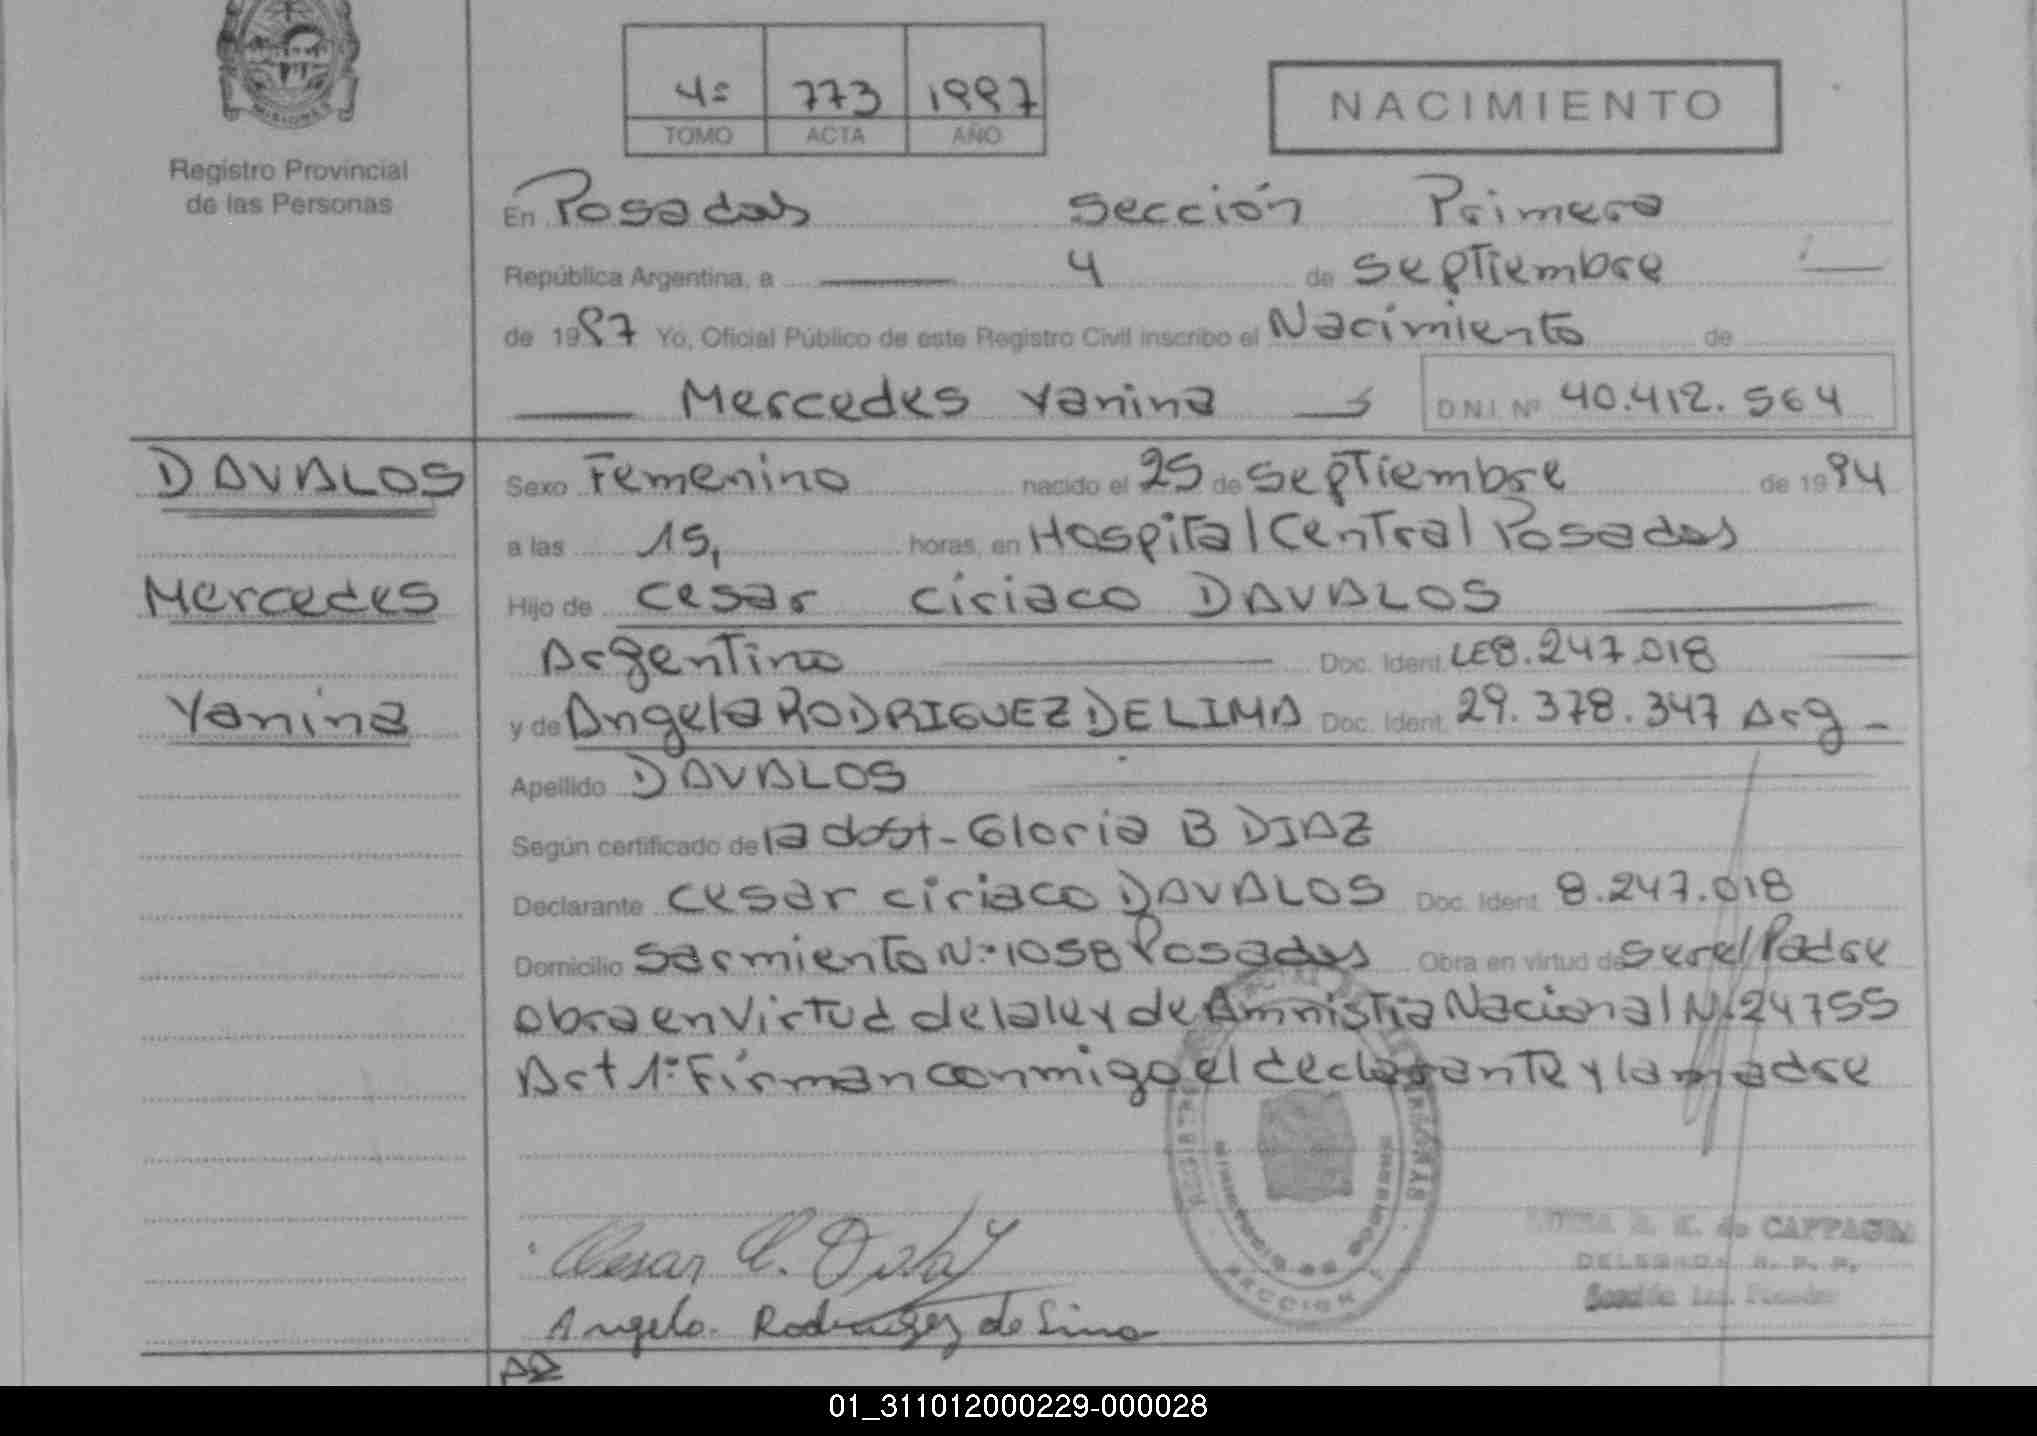 MISIONES
Registro Provincial
de las Personas
4º 773 1997
TOMO ACTA AÑO
NACIMIENTO
En Posadas sección Primera
República Argentina, a 4 de septiembre
de 1997 Yo, Oficial Público de este Registro Civil inscribo el Nacimiento de
Mercedes Yanina D.N.I. Nº 40.412.564
DAVALOS
Mercedes
Yanina
Sexo Femenino nacido el 25 de septiembre de 1994
a las 15, horas, en Hospital Central Posadas
Hijo de Cesar Ciriaco DAVALOS
Argentino Doc. Ident. LE8.247.018
y de Angela RODRIGUEZ DE LIMA Doc. Ident. 29.378.347 Arg
Apellido DAVALOS
Según certificado de la obst- Gloria B DIAZ
Declarante Cesar Ciriaco DAVALOS Doc. Ident. 8.247.018
Domicilio Sarmiento Nº 1058 Posadas Obra en virtud de ser el Padre
obra en virtud de la ley de Amnistia Nacional Nº 24755
Art 1º Firman conmigo el declarante y la madre
Cesar C.
Angela Rodriguez de Lima
SECCION 1
de CAPPAGIN
DELEGADA R. P. P.
01_311012000229-000028